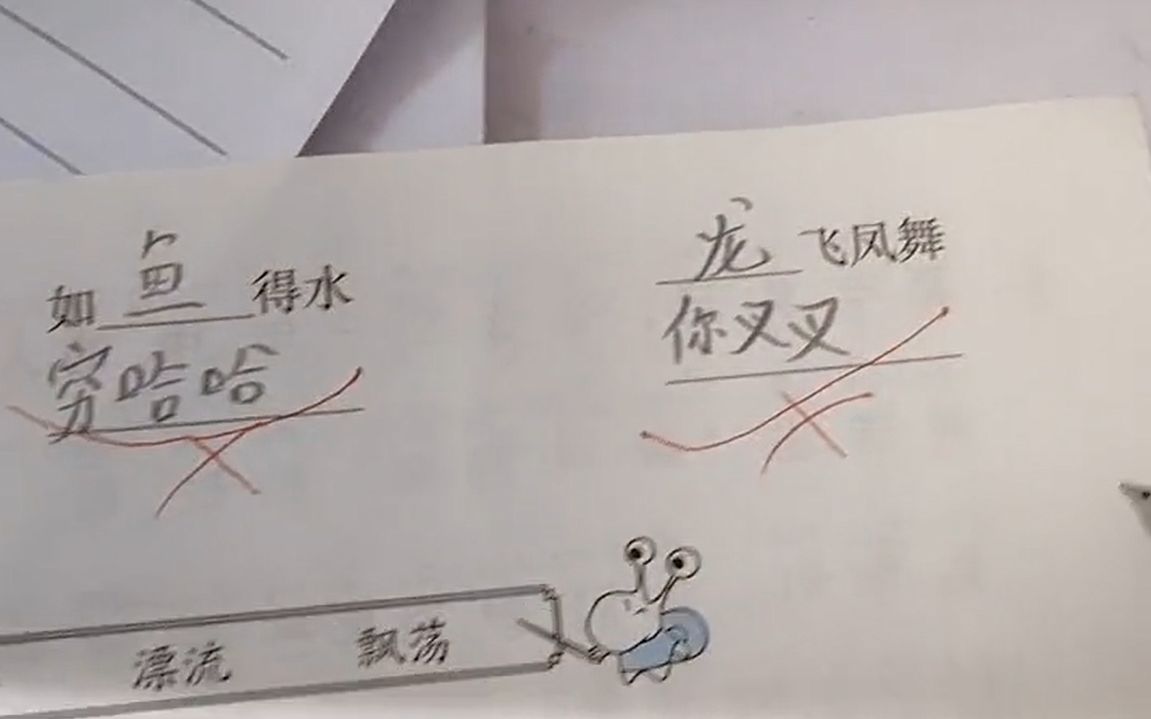 如鱼得水
龙飞凤舞
穷哈哈
你叉叉
漂流 飘荡